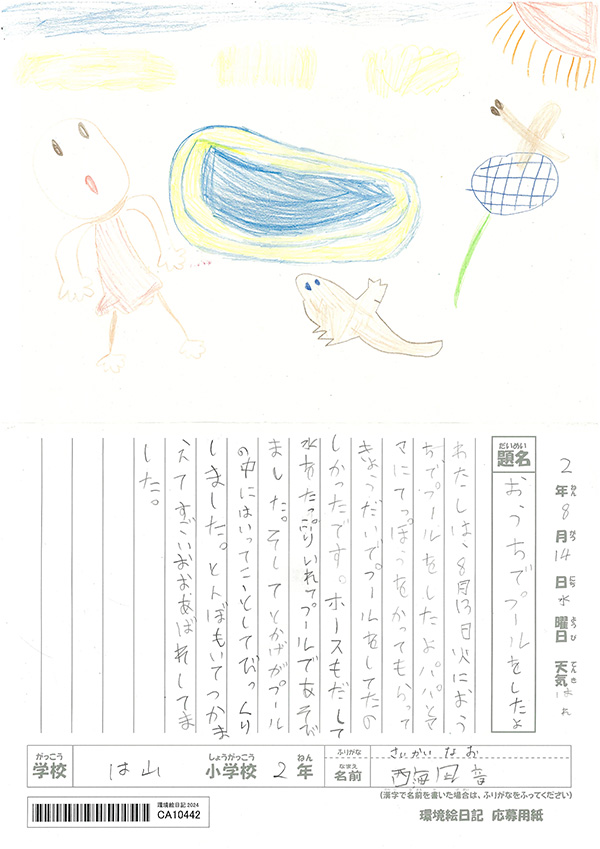 2年8月14日水曜日 天気はれ
ねん がつ にち ようび てんき
だいめい
題名
おうちでプールをしたよ
わたしは、8月13日火におう
ちでプールをしたよパパとマ
マにてっぽうをかってもらって
きょうだいでプールをしてたの
しかったです。ホースもだして
水をたっぷりいれてプールであそび
ました。そしてとかげがプール
の中にはいってこいとしてびっくり
しました。とんぼもいてつかま
えてすごいおおあばれしてま
した。
がっこう
学校
は山
しょうがっこう
小学校
2
ねん
年
ふりがな
さいかい なお
なまえ
名前
西海
音
(漢字で名前を書いた場合は、ふりがなをふってください)
環境絵日記2024
CA10442
環境絵日記 応募用紙